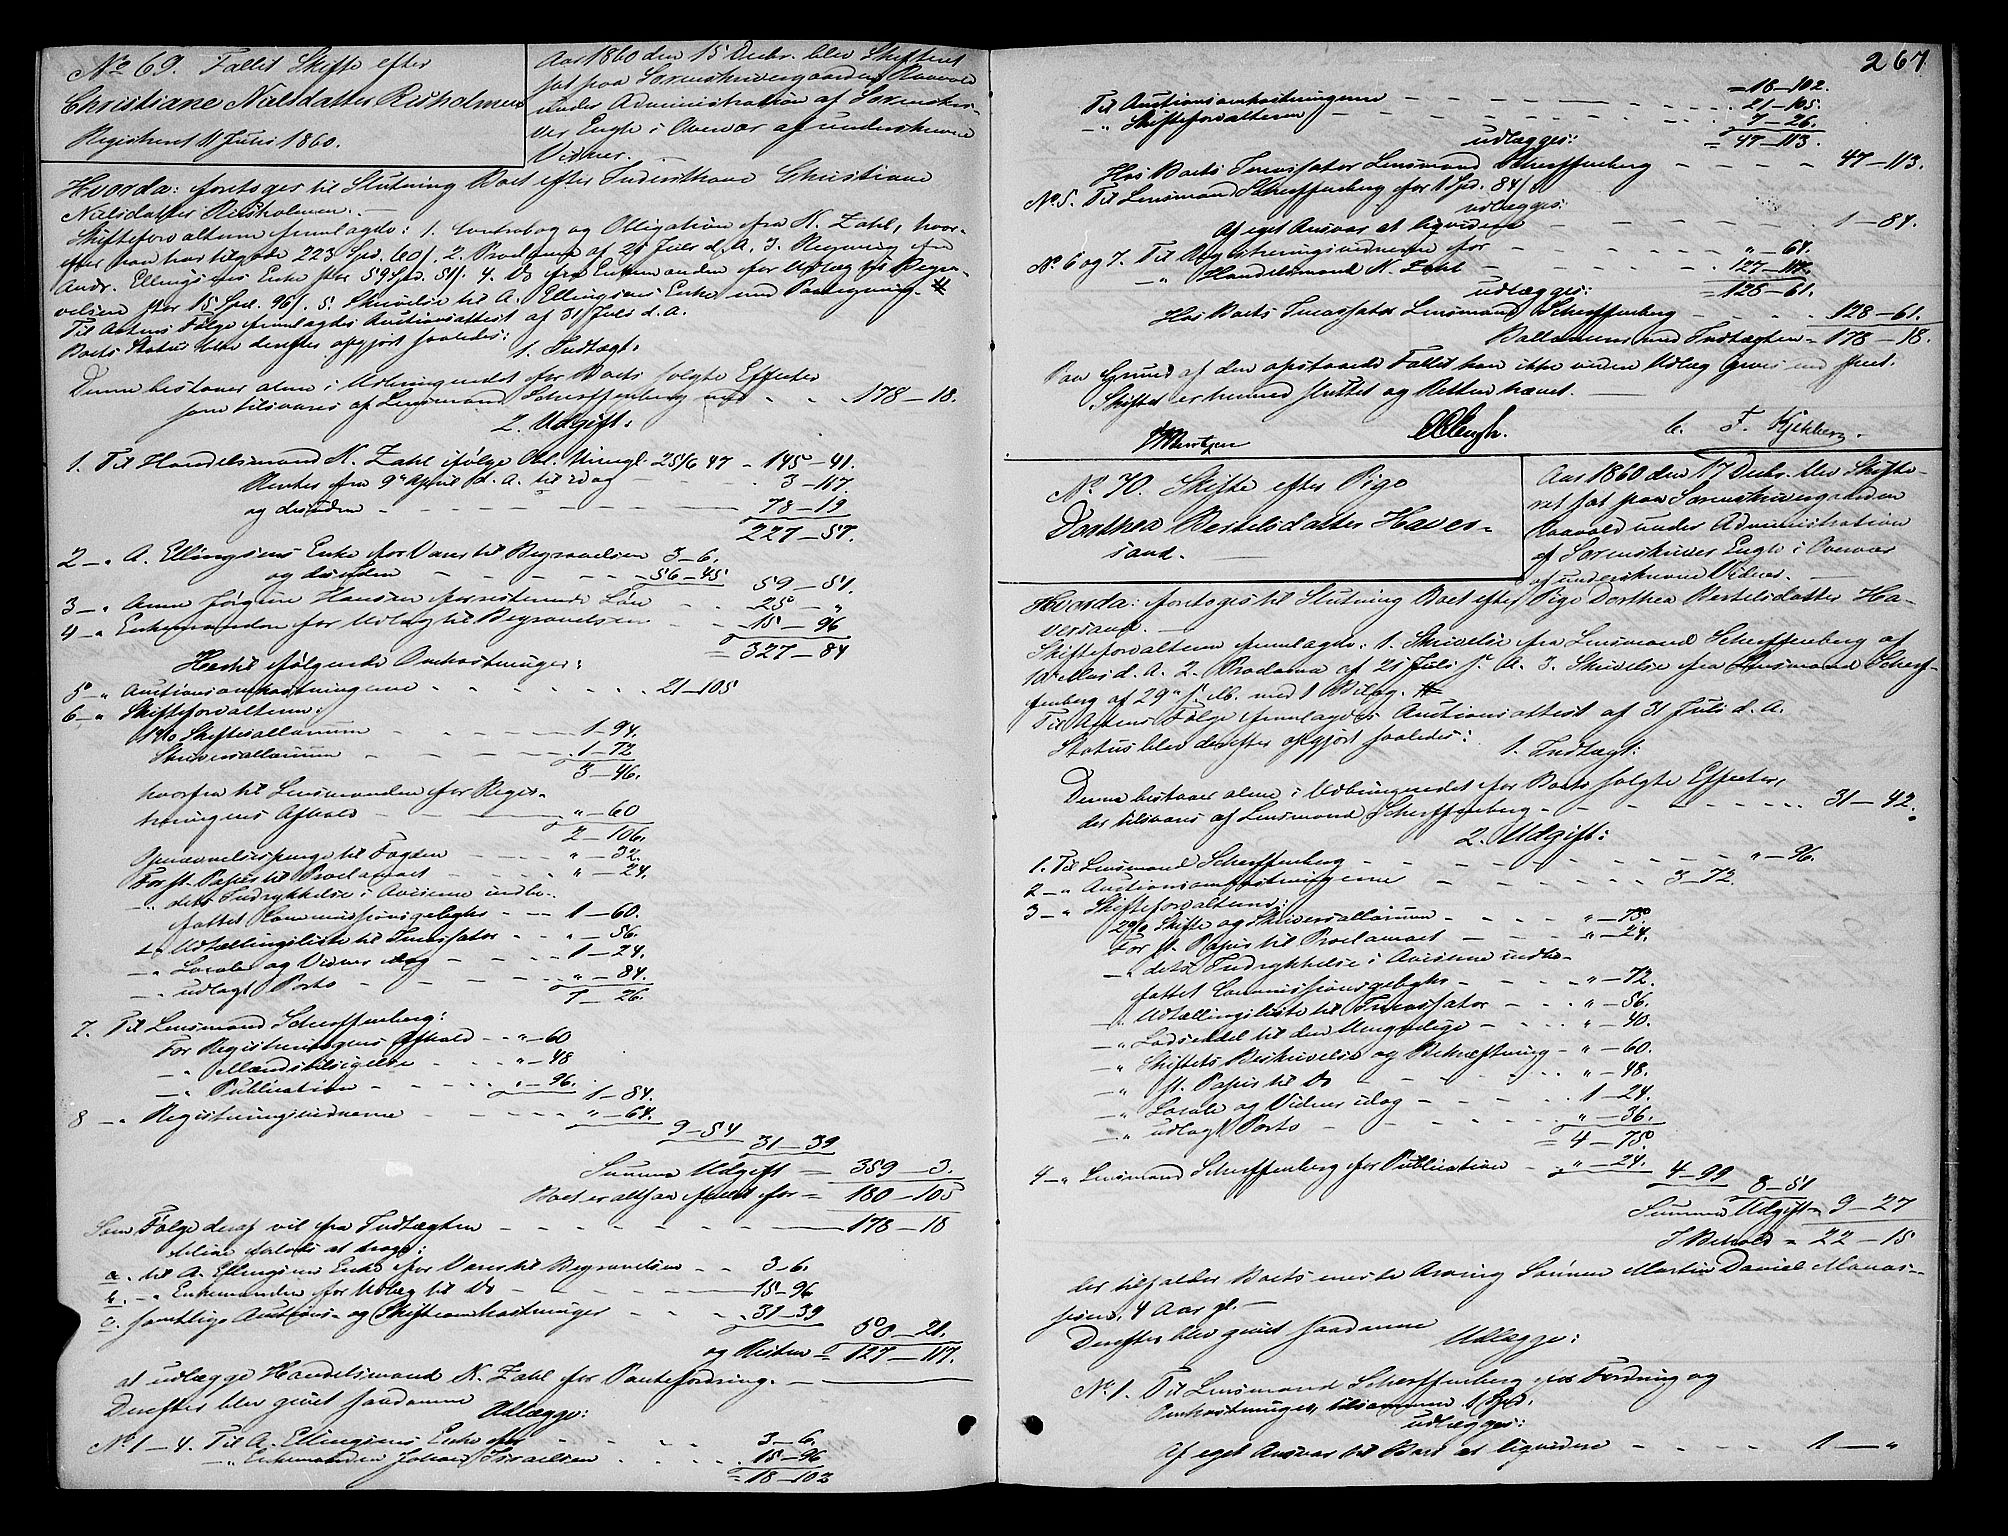 No 69. Fallit Skifte efter
Christiane Nielsdatter Risholmen
Registreret 11 Juli 1860.
Aar 1860 den 15 Decbr. blev Skifteret
sat paa Sorenskrivergaarden Raavold
under Administration af Sorenskri-
ver Engh i Overvær af underskrevne
Vidner.
Hvorda: foretoges til Slutning Boet efter Inderstkone Christiane
Nielsdatter Risholmen.
Skifteforvalteren fremlagde: 1. Contrabog og Obligation fra N. Zahl, hvor-
efter han har tilgode 223 Spd. 60 s. 2. Proclama af 21 Juli d. A. 3. Regning fra
Andr. Ellingsens Enke stor 59 Spd. 51 s. 4. Do fra Enkemanden for Udlæg til Begra-
velsen stor 15 Spd. 96 s. 5. Skrivelse til A. Ellingsens Enke med Paategning. #
Til Actens Følge fremlagdes Auctionsattest af 31 Juli d. A.
Boets Status blev derefter opgjort saaledes:
1. Indtægt:
Denne bestaaer alene i Udbringendet for Boets solgte Effecter
som tilsvares af Lensmand Scherffenberg med - - 178-18.
2. Udgift:
1. Til Handelsmand N. Zahl ifølge Obl. thingl. 25/6 47 - 145-41.
Renter fra 9de April d. A. til idag - - 3-117.
og desuden - - - 78-19
227-57.
2-" A. Ellingsens Enke for Varer til Begravelsen 3-6.
og desuden - - - 56-45 59-51.
3-" Anne Jørgine Hansen for resterende Løn - - 25-"
4-" Enkemanden for Udlæg til Begravelsen - - 15-96
= 327-84
Hertil følgende Omkostninger:
5-" Auctionsomkostningerne - - - 21-105
6-" Skifteforvalteren:
1% Skiftesallarium - - - 1-94.
Skriversallarium - - - 1-72
3-46.
hvorfra til Lensmanden for Regis-
treringens Afhold - - - "-60
2-106.
Oprævelsespenge til Fogden - - - "-32.
For st. Papir til Proclamaet - - - "-24.
-" dets Indrykkelse i Aviserne indbe-
fattet Commissionsgebyhr - - 1-60.
-" Udtællingsliste til Incassator - - "-56.
-" Locale og Vidner idag - - - 1-24.
-" udlagt Porto - - - "-84.
7-26.
7. Til Lensmand Scherffenberg:
For Registreringens Afhold - - "-60
-" Mændstilsigelse - - - "-48
-" Publication - - - "-96.
1-84.
8-" Registreringsvidnerne - - - "-64.
9-54
31-39
Summa Udgift = 359-3.
Boet er altsaa fallit for = 180-105
Som Følge deraf vil fra Indtægten - - - 178-18
blive forlods at drage:
a. til A. Ellingsens Enke for Varer til Begravelsen - - 3-6.
b. -" Enkemanden for Udlæg til Do - - 15-96
c. samtlige Auctions- og Skifteomkostninger - - 31-39
50-21.
og Resten = 127-117.
at udlægge Handelsmand N. Zahl for Pantefordring.
Derefter blev gjort saadanne
Udlægge:
No 1-4. Til A. Ellingsens Enke for - - - 3-6.
-" Enkemanden Johan Israelsen - - - 15-96
= 18-102
267
= 18-102.
Til Auctionsomkostningerne - - - 21-105.
-" Skifteforvalteren - - - 7-26.
udlægges: = 47-113.
Hos Boets Incassator Lensmand Scherffenberg - - - 47-113.
No 5. Til Lensmand Scherffenberg for 1 Spd. 84 s.
udlægges:
Af eget Ansvar at liqvidere - - - 1-84.
No 6 og 7. Til Registreringsvidnerne for - - - "-64.
-" Handelsmand N. Zahl - - - 127-117.
udlægges: = 128-61.
Hos Boets Incassator Lensmand Scherffenberg - - - 128-61.
Ballancerer med Indtægten = 178-18.
Paa Grund af den opstaaede Fallit kan ikke videre Udlæg gives end skeet.
Skiftet er hermed sluttet og Retten hævet.
Engh.
C. F. Kjekberg.
No 70. Skifte efter Pige
Dorthea Bertelsdatter Haver-
sand.
Aar 1860 den 17 Decbr. blev Skifte-
ret sat paa Sorenskrivergaarden
Raavold under Administration
af Sorenskriver Engh i Overvær
af underskrevne Vidner.
Hvorda: foretoges til Slutning Boet efter Pige Dorthea Bertelsdatter Ha-
versand.
Skifteforvalteren fremlagde: 1. Skrivelse fra Lensmand Scherffenberg af
10 Mai d. A. 2. Proclama af 21 Juli s. A. 3. Skrivelse fra Lensmand Scherf-
fenberg af 29de f. M. med 1 Bilag. #
Til Actens Følge fremlagdes Auctionsattest af 31 Juli d. A.
Status blev derefter opgjort saaledes:
1. Indtægt:
Denne bestaaer alene i Udbringendet for Boets solgte Effecter,
der tilsvares af Lensmand Scherffenberg - - - 31-42.
2. Udgift:
1. Til Lensmand Scherffenberg - - - "-96.
2-" Auctionsomkostningerne - - - 3-72.
3-" Skifteforvalteren:
2% Skifte og Skriversallarium - - - "-75.
For st. Papir til Proclamaet - - - "-24.
-" dets Indrykkelse i Aviserne indbe-
fattet Commissionsgebyhr - - - "-72.
-" Udtællingsliste til Incassator - - - "-56.
-" Lodseddel til den Umyndige - - - "-40.
-" Skiftets Beskrivelse og Bekræftning - "-60.
-" st. Papir til Do - - - "-48.
-" Locale og Vidner idag - - - 1-24.
-" udlagt Porto - - - "-36.
= 4-75
4-" Lensmand Scherffenberg for Publication - "-24.
4-99
8-51
Summa Udgift = 9-27
I Behold = 22-15
der tilfalder Boets eneste Arving Sønnen Martin Daniel Manas-
sesen, 4 Aar gl.
Derefter blev gjort saadanne
Udlægge:
No 1. Til Lensmand Scherffenberg for Fordring og
Omkostninger, tilsammen 1 Spd.
udlægges:
Af eget Ansvar til Boet at liqvidere - - - 1-"